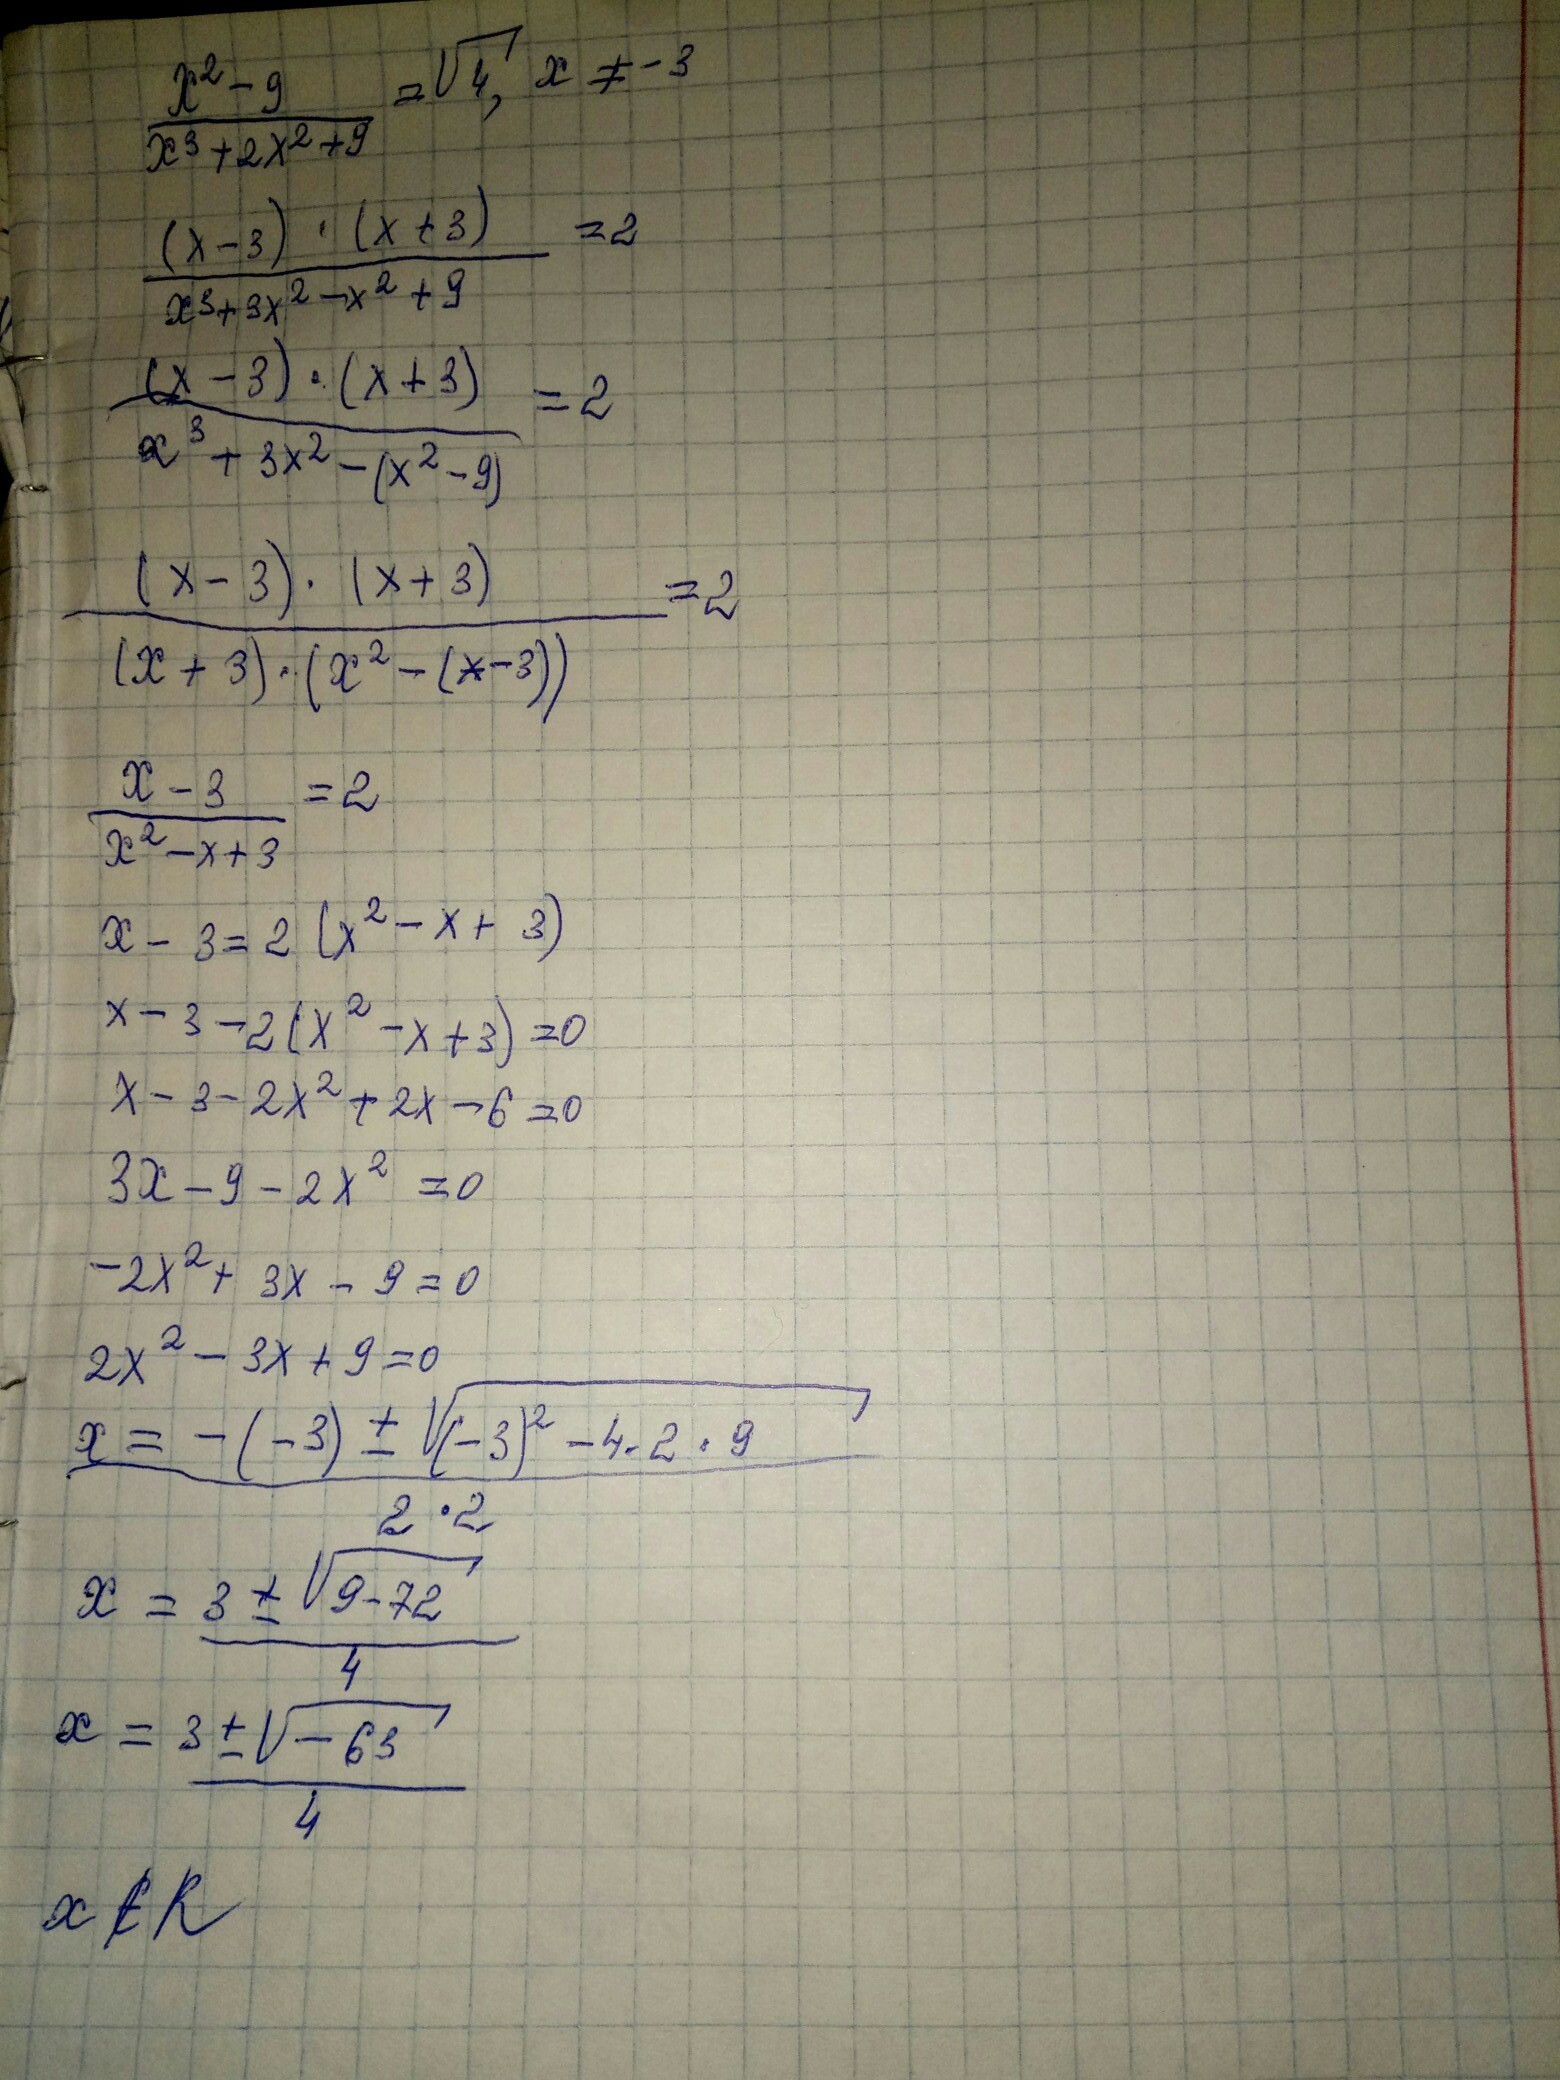 (x²-9)/(x³+2x²+9) = √4, x ≠ -3
((x-3)·(x+3))/(x³+3x²-x²+9) = 2
((x-3)·(x+3))/(x³+3x²-(x²-9)) = 2
((x-3)·(x+3))/((x+3)·(x²-(x-3))) = 2
(x-3)/(x²-x+3) = 2
x-3=2(x²-x+3)
x-3-2(x²-x+3)=0
x-3-2x²+2x-6=0
3x-9-2x²=0
-2x²+3x-9=0
2x²-3x+9=0
x = (-(-3)±√((-3)²-4·2·9))/(2·2)
x = (3±√(9-72))/4
x = (3±√(-63))/4
x∉R